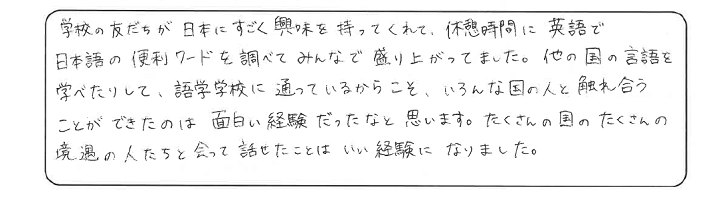 学校の友だちが日本にすごく興味を持ってくれて、休憩時間に英語で
日本語の便利ワードを調べてみんなで盛り上がってました。他の国の言語を
学べたりして、語学学校に通っているからこそ、いろんな国の人と触れ合う
ことができたのは面白い経験だったなと思います。たくさんの国のたくさんの
境遇の人たちと会って話せたことはいい経験になりました。